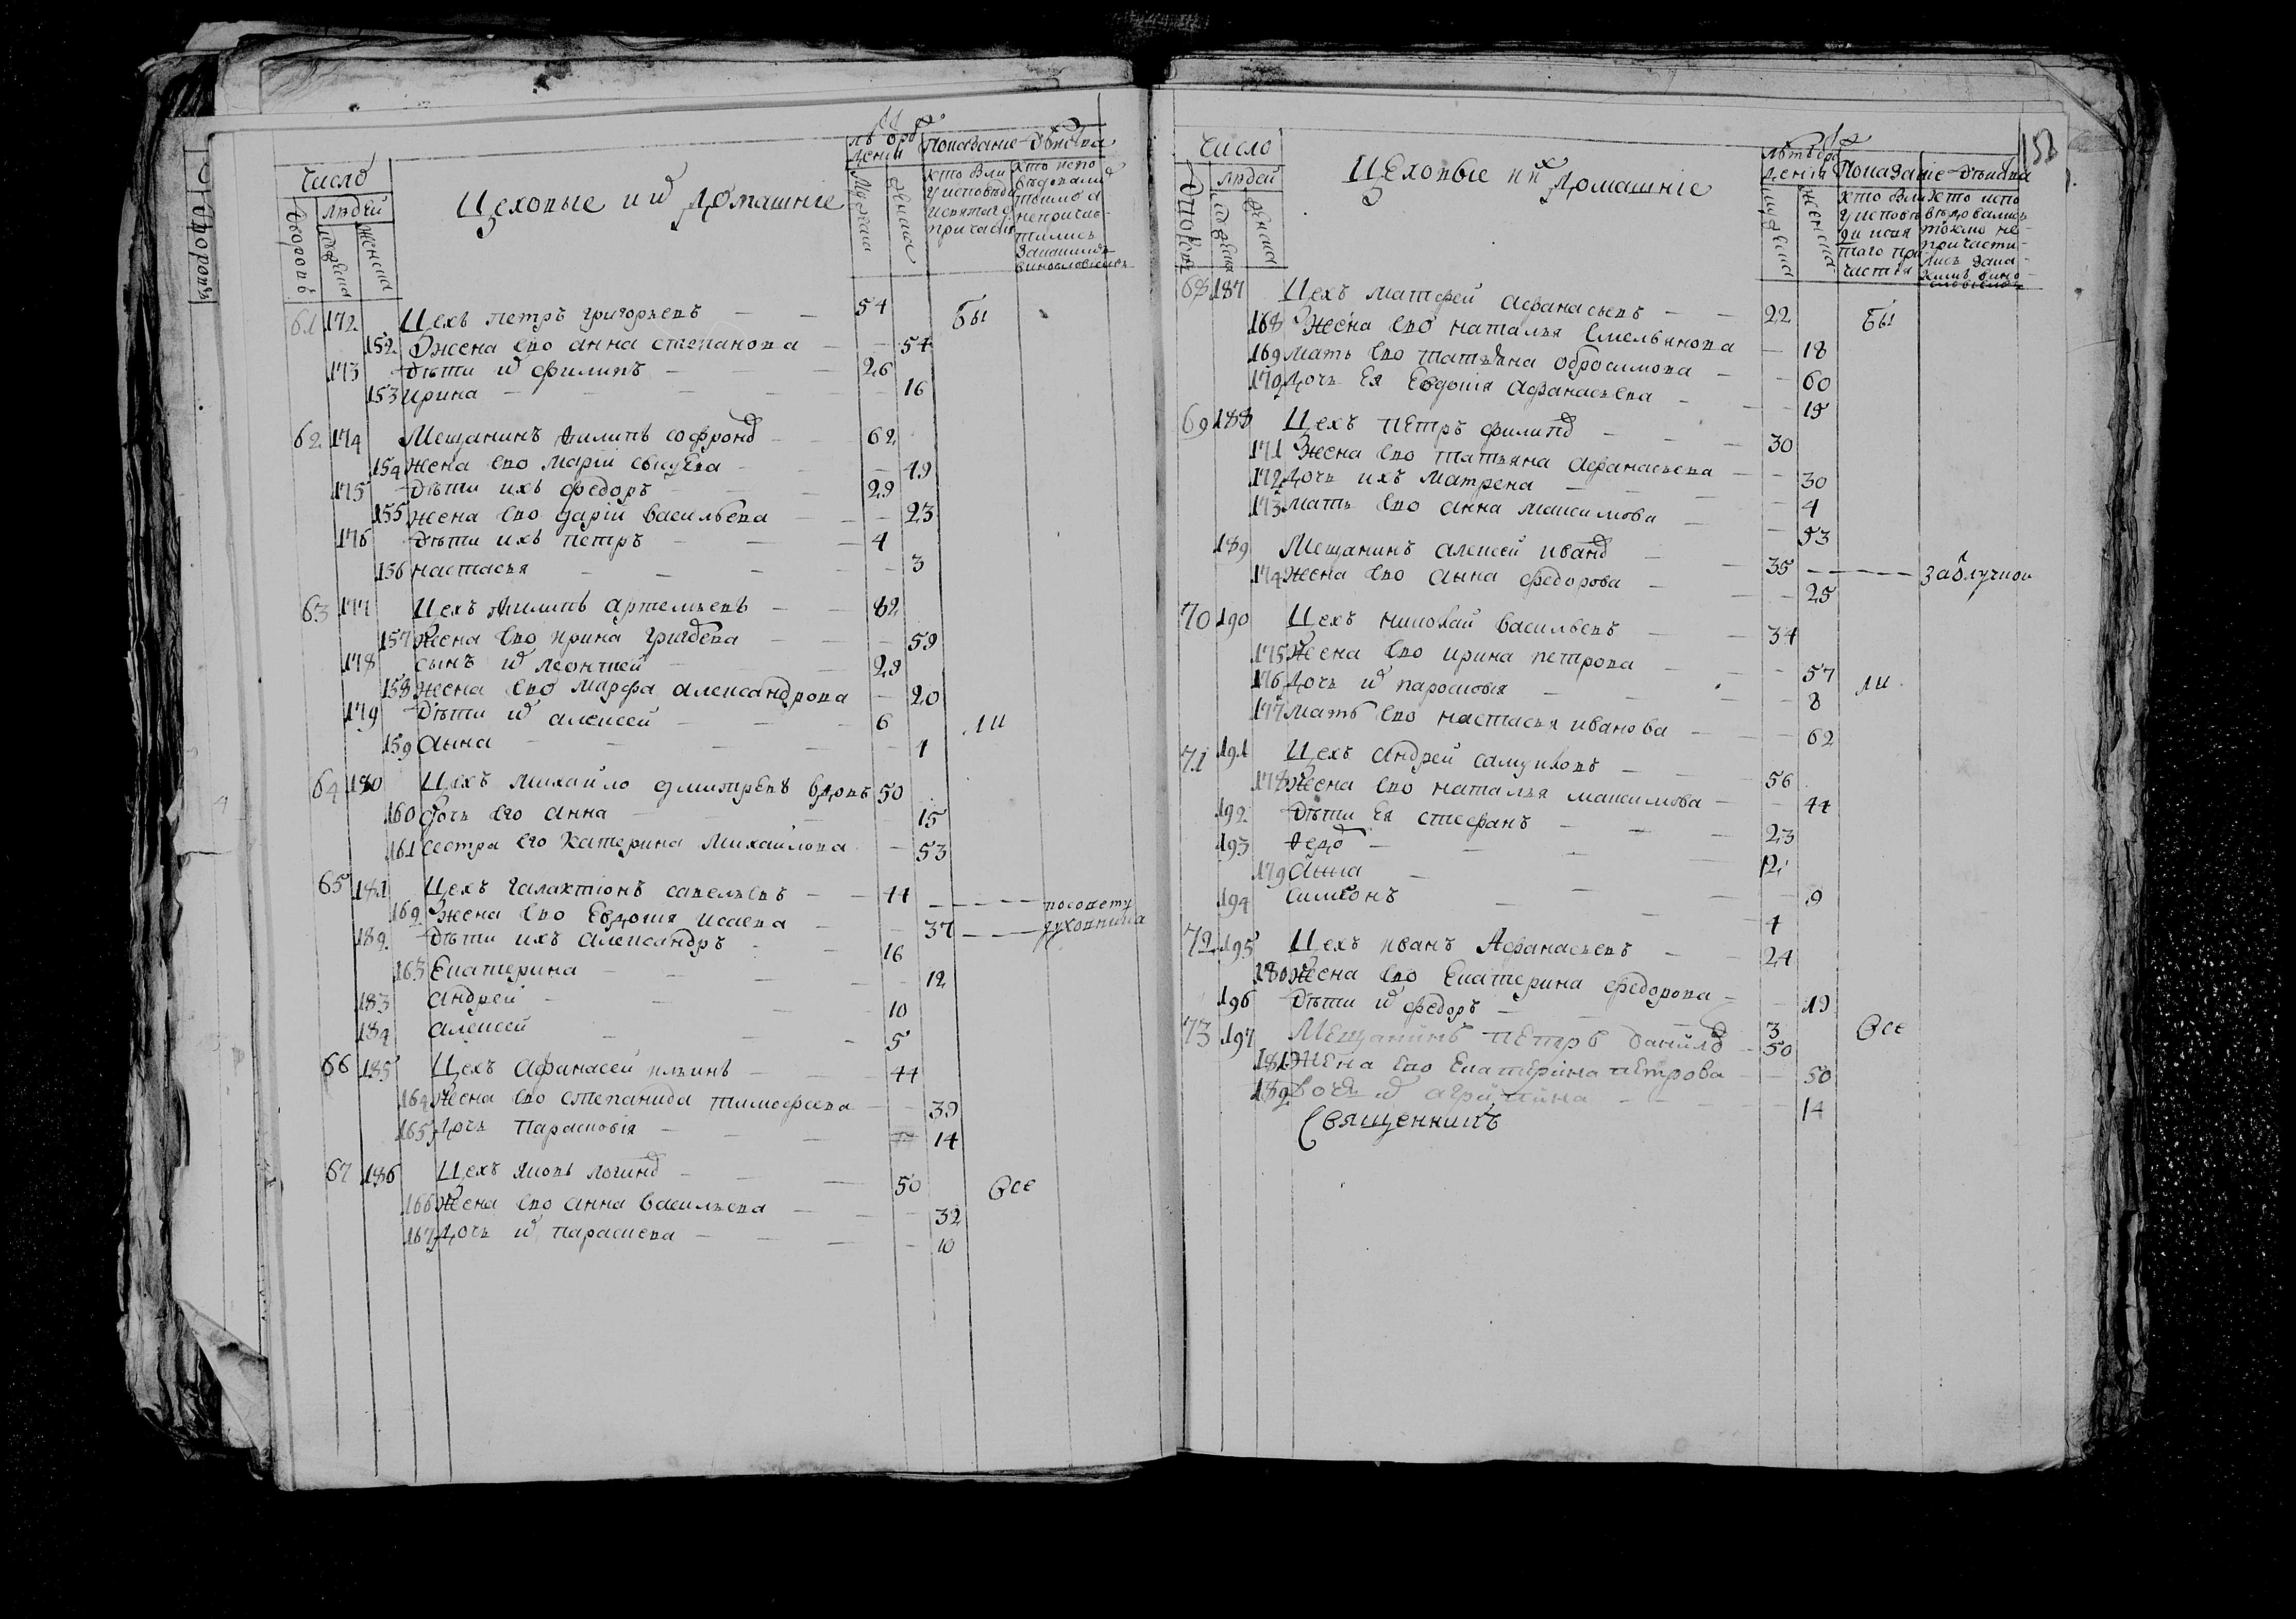 Число
Людей
Дворовъ
Мужеска
Женска
Цеховые и их домашніе
Показаніе действа
61 172 Цехъ петръ григорьевъ 54 бы
152 Жена ево анна степанова 54
173 дѣти их филипъ 26
153 ирина 16
62 174 Мещанинъ филипъ софронов 62
154 жена ево марiй 49
175 дѣти ихъ федоръ 29
155 жена ево дарiй васильева 23
176 дѣти ихъ петръ 4
156 настасья 3
63 177 Цехъ филипъ артемьевъ 82
157 Жена ево ирина григорева 59
178 сынъ их леонтией 29
158 жена ево марфа александрова 20
179 дѣти их алексей 6 ли
159 анна 1
64 180 Цехъ михайло дмитревъ вдовъ 50
160 дочь его анна 15
161 сестра его катерина михайлова 53
65 181 Цехъ галактіонъ савельевъ 44 посовету
162 Жена ево евдокия исаева 37 духовника
182 дѣти ихъ александръ 16
163 екатерина 12
183 андрей 10
184 алексей 5
66 185 Цехъ афанасей ильинъ 44
164 Жена ево степанида тимофеева 39
165 дочь парасковія 14
67 186 Цехъ яковъ логинов 50 все
166 Жена ево анна васильева 32
167 дочь их параскева 10
Число
Людей
Цеховые и их домашніе
Показаніе действа
68 187 Цехъ матфей афанасьевъ 22 бы
168 Жена ево наталья емельянова 18
169 мать ево татьяна обросимова 60
170 дочь ея евдокія афанасьева 15
69 188 Цехъ петръ филипов 30
171 Жена ево татьяна афанасьева 30
172 дочь ихъ матрена 4
173 мать ево анна максимова 53
189 Мещанинъ алексей иванов 35 заотлучкой
174 жена ево анна федорова 25
70 190 Цехъ николай васильевъ 34
175 Жена ево ирина петрова 57
176 дочь их парасковія 8 ли
177 мать ево настасья иванова 62
71 191 Цехъ андрей самуиловъ 56
178 Жена ево наталья максимова 44
192 дѣти ея стефанъ 23
193 федор 12
179 анна 9
194 симеонъ 4
72 195 Цехъ иванъ афанасьевъ 24
180 Жена ево екатерина федорова 19
196 дѣти их федоръ 3
73 197 Мещанинъ петръ данилов 50 все
181 Жена ево екатерiна петрова 50
182 дочь их агрипина 14
Священникъ